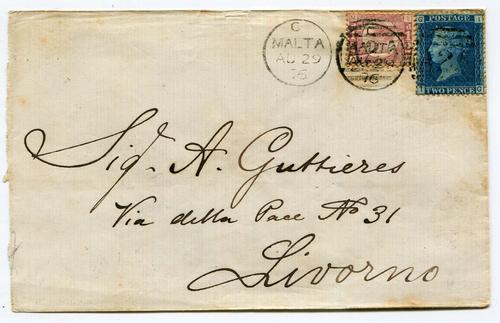 C
MALTA
AU 29
76
C
MALTA
AU 29
76
POSTAGE
TWO PENCE
Sigr. A. Guttieres
Via della Pace No 31
Livorno